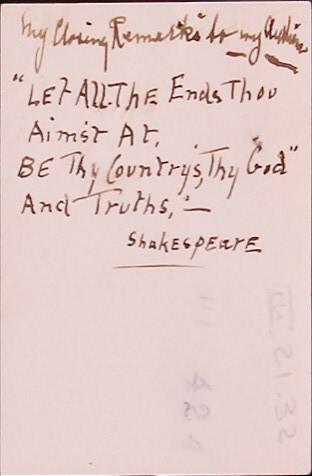 My Closing Remarks to my
"LET All.THE Ends Thou
Aimst At,
BE Thy Countrys, Thy God"
And Truths, :—
Shakespeare
III. 21. 32
III 424